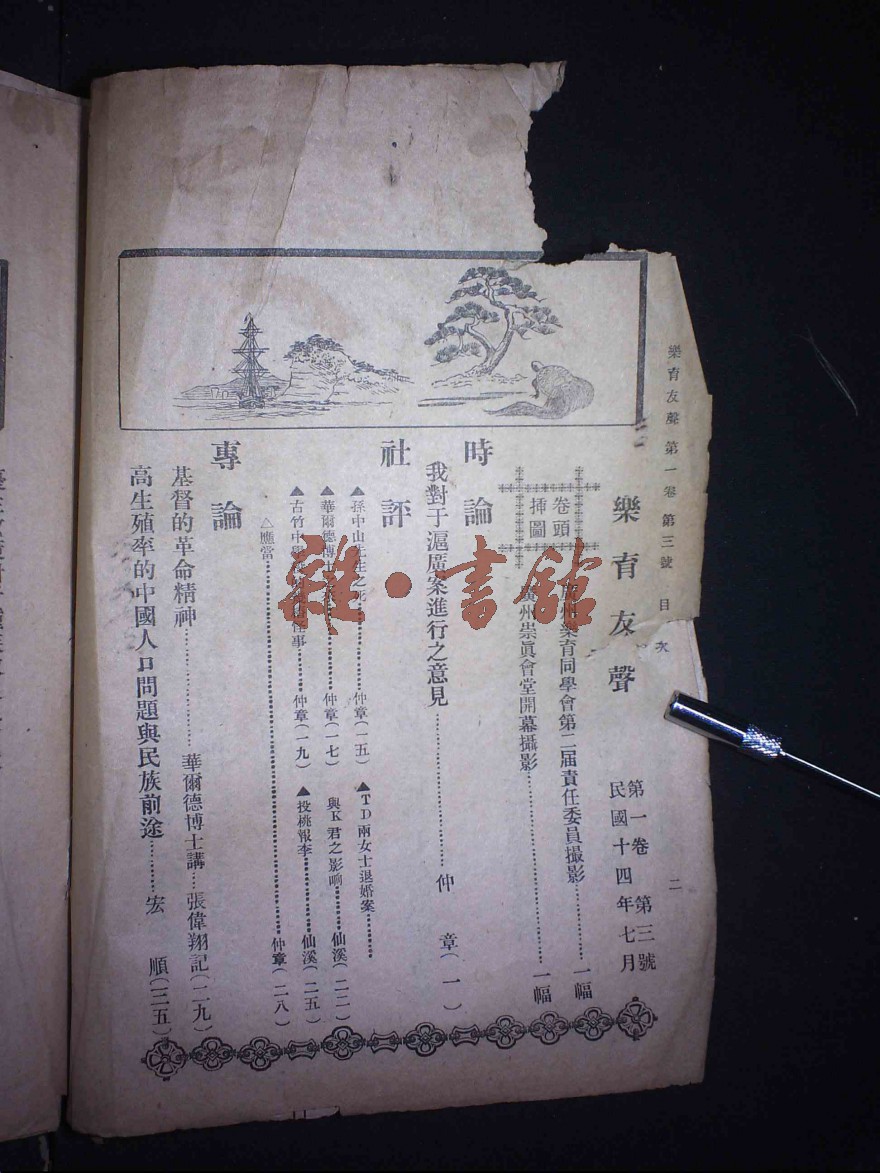 樂育友聲 第一卷 第三號 目次 二
樂育友聲
第一卷 第三號
民國十四年七月
卷頭
插圖
廣州樂育同學會第二届責任委員撮影……一幅
廣州崇眞會堂開幕攝影……一幅
時論
我對于滬廣案進行之意見……仲章(一)
社評
▲孫中山先生之死……仲章(一五)
▲TD兩女士退婚案……
▲華爾德博士……仲章(一七)
與K君之影响……仙溪(二二)
▲古竹中學……怪事……仲章(一九)
▲投桃報李……仙溪(二五)
△應當……仲章(二八)
專論
基督的革命精神……華爾德博士講…張偉翔記(二九)
高生殖率的中國人口問題與民族前途……宏順(三五)
雜·書館